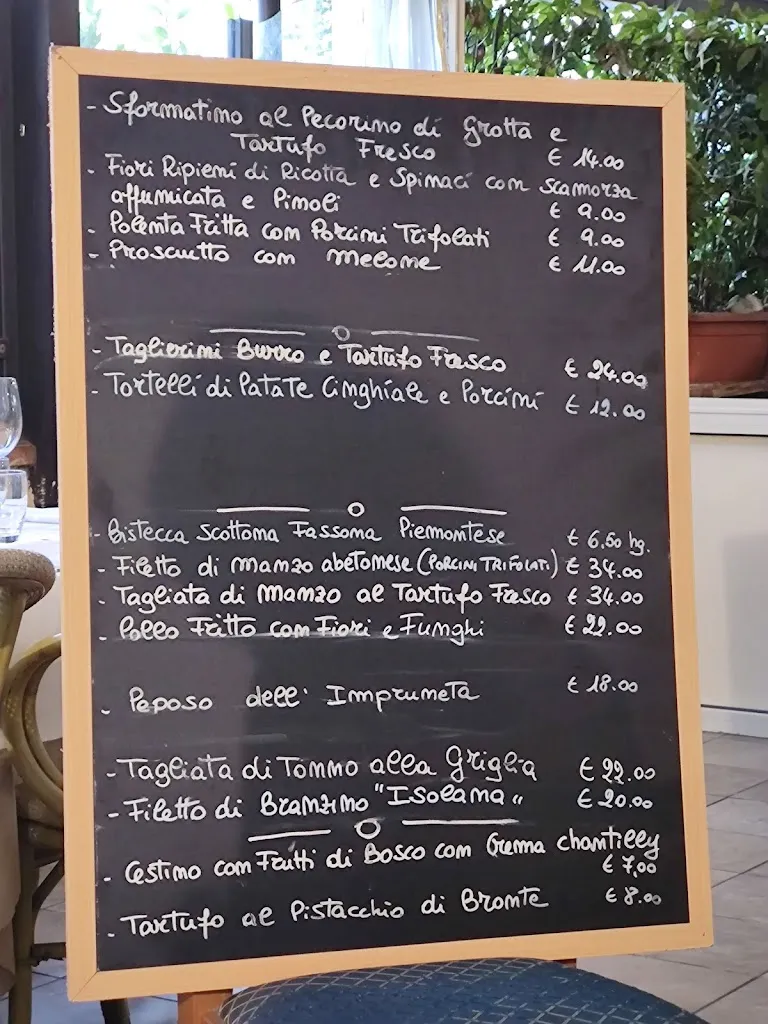 - Sformatino al Pecorino di Grotta e
Tartufo Fresco € 14.00
- Fiori Ripieni di Ricotta e Spinaci con scamorza
affumicata e Pinoli € 9.00
- Polenta Fritta con Porcini Trifolati € 9.00
- Prosciutto con melone € 11.00
- Taglierini Burro e Tartufo Fresco € 24.00
- Tortelli di Patate Cinghiale e Porcini € 12.00
- Bistecca Scottona Fassona Piemontese € 6,50 hg.
- Filetto di manzo abetonese (PORCINI TRIFOLATI) € 34.00
- Tagliata di Manzo al Tartufo Fresco € 34.00
- Pollo Fritto con Fiori e Funghi € 22.00
- Peposo dell' Impruneta € 18.00
- Tagliata di Tonno alla Griglia € 22.00
- Filetto di Branzino "Isolana" € 20.00
- Cestino con Frutti di Bosco con Crema chantilly
€ 7,00
- Tartufo al Pistacchio di Bronte € 8.00